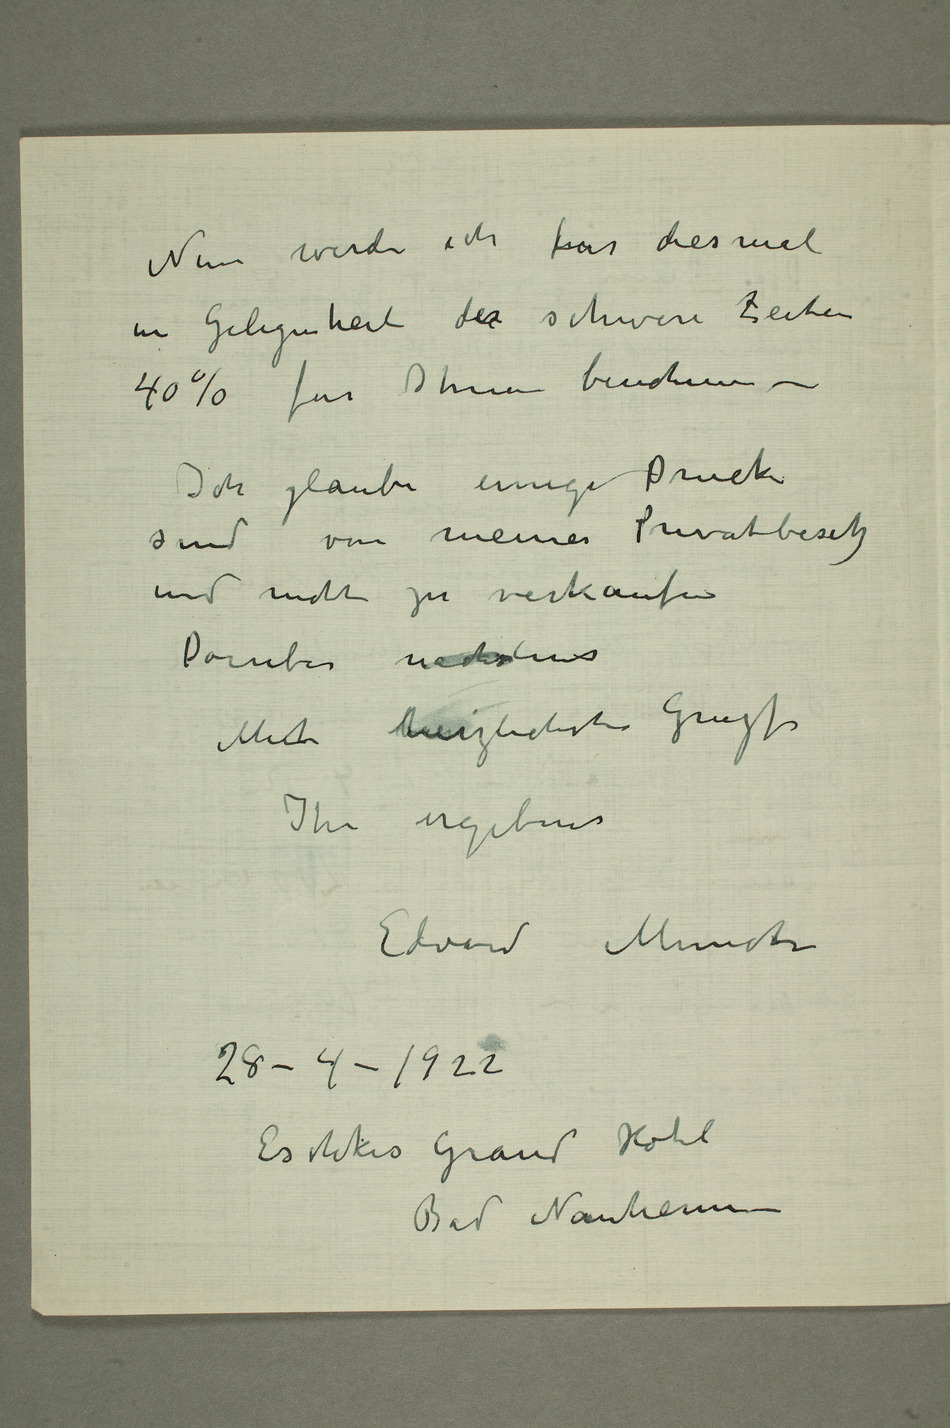 Nun werde ich für diesmal
in Gelegenheit der schwere Zeiten
40% für Ihnen berechnen –
Ich glaube einige Drucke
sind von meiner Privatbesitz
und nicht zu verkaufen
Darüber nächstens
Mit herzlichste Grüße
Ihr ergebens
Edvard Munch
28 – 4 – 1922
Eschkes Grand Hotel
Bad Nauheim –